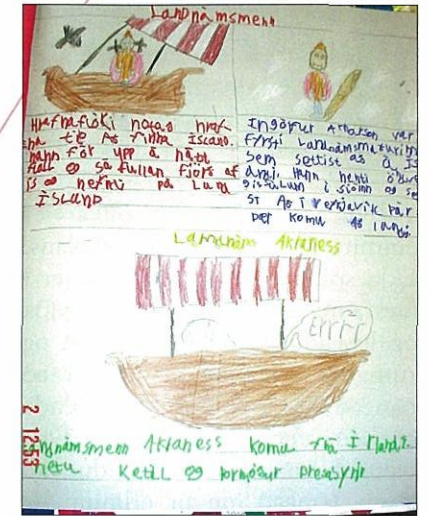 Landnámsmenn
Hrafnaflóki notað hraf
na til As finna Ísland.
hann fór upp á hátt
fjall og sá fullan fjörð af
ís og nefndi það Land
ÍSLAND
Ingólfur Arnarson var
Fyrsti Landnámsmaðurinn
Sem settist að á Ís
landi. Hann henti
í sjóinn og se
st As í reykjavík þar
þer komu As landi
Landnám Akraness
Errrr
Langnámsmenn Akraness komu frá Írlandi.
hétu Ketill og þormóður Bresasynir
2 12:53